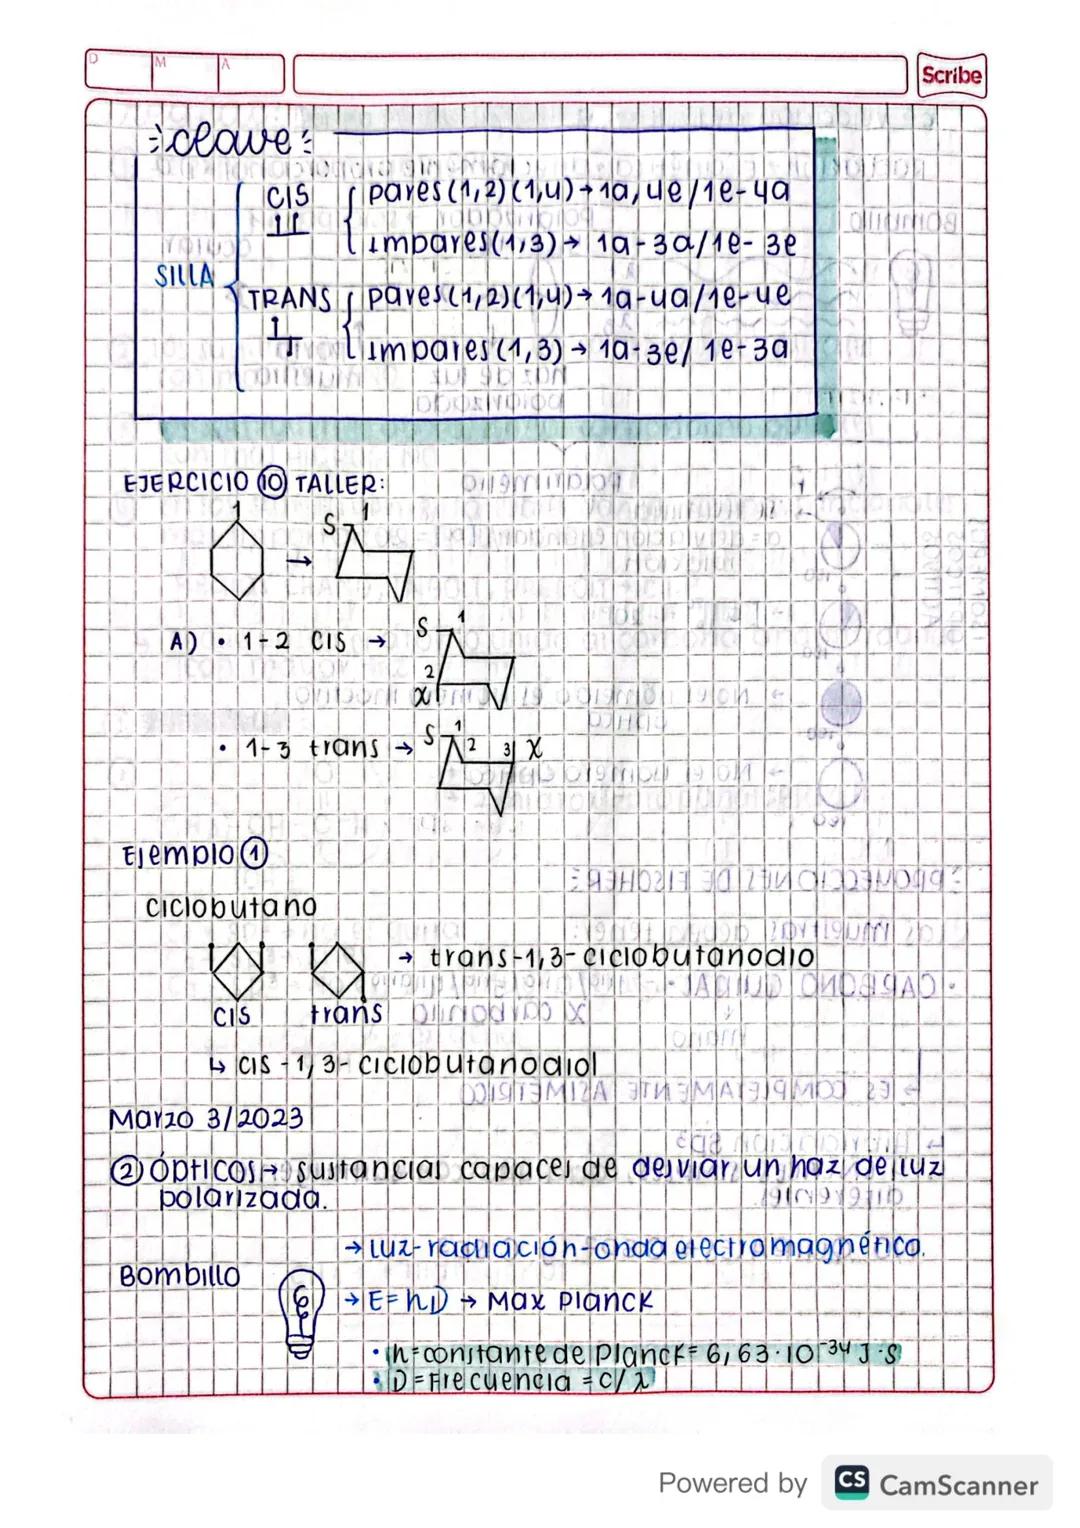 D M A
Scribe
clave
CIS pares (1,2) (1,4) → 1a, 4e / 1e-4a
impares (1,3) → 1a-3a / 1e-3e
SILLA
TRANS pares (1,2) (1,4) → 1a-4a / 1e-4e
impares (1,3) → 1a-3e / 1e-3a
EJERCICIO 10 TALLER:
1 → S 1
A) • 1-2 CIS → S 1
2
X
• 1-3 trans → S 1 2 3 X
Ejemplo 1
ciclobutano
→ trans-1,3-ciclobutanodio
cis trans
↳ cis-1,3-ciclobutanodiol
Marzo 3/2023
2 Ópticos → sustancias capaces de desviar un haz de luz
polarizada.
→ Luz-radiación-onda electromagnética.
Bombillo
→ E=hD → Max Planck
• h=constante de Planck= 6,63·10⁻³⁴ J·s
• D=Frecuencia = c/λ
Powered by CS CamScanner